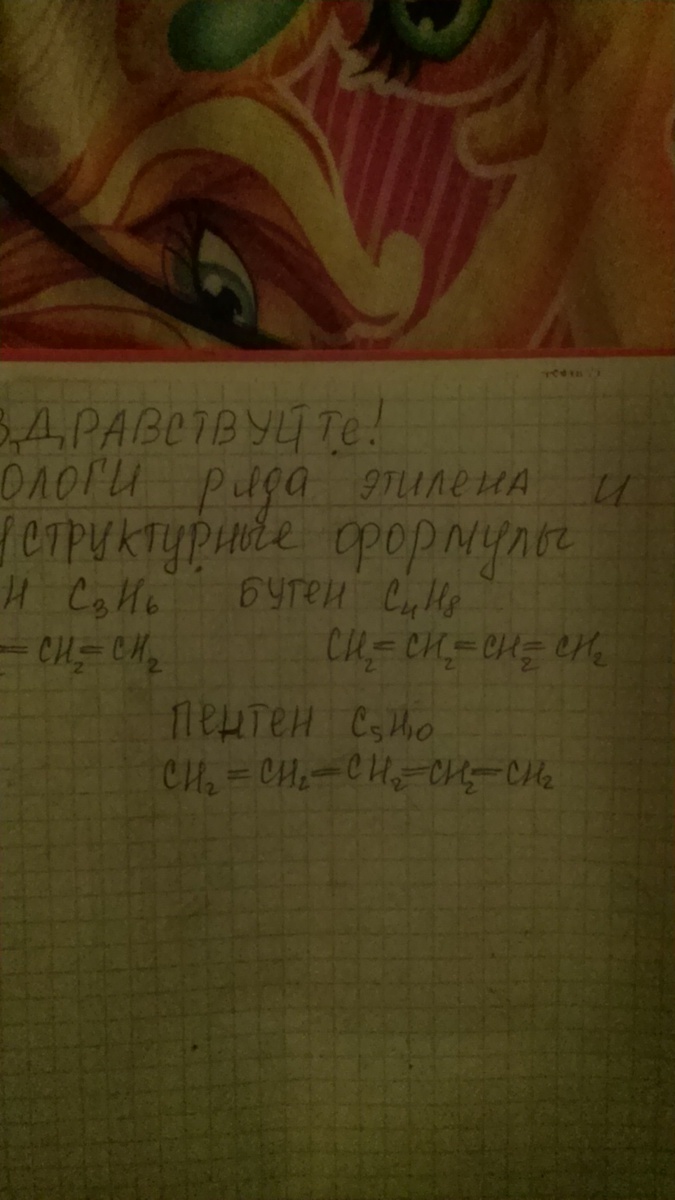 ЗДРАВСТВУЙТе!
ОЛОГИ ряда этилена и
структурные формулы
Н C₃H₆ бутен C₄H₈
= CH₂ = CH₂ CH₂ = CH₂ = CH₂ = CH₂
пентен C₅H₁₀
CH₂ = CH₂ = CH₂ = CH₂ = CH₂